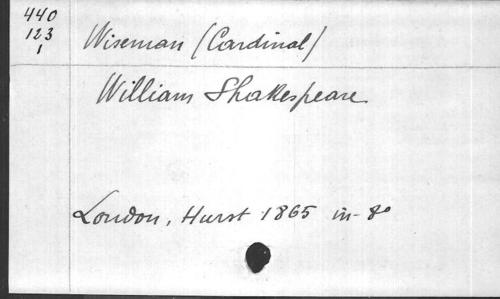 440
123
1
Wiseman (Cardinal)
William Shakespeare
London, Hurst 1865 in-8º